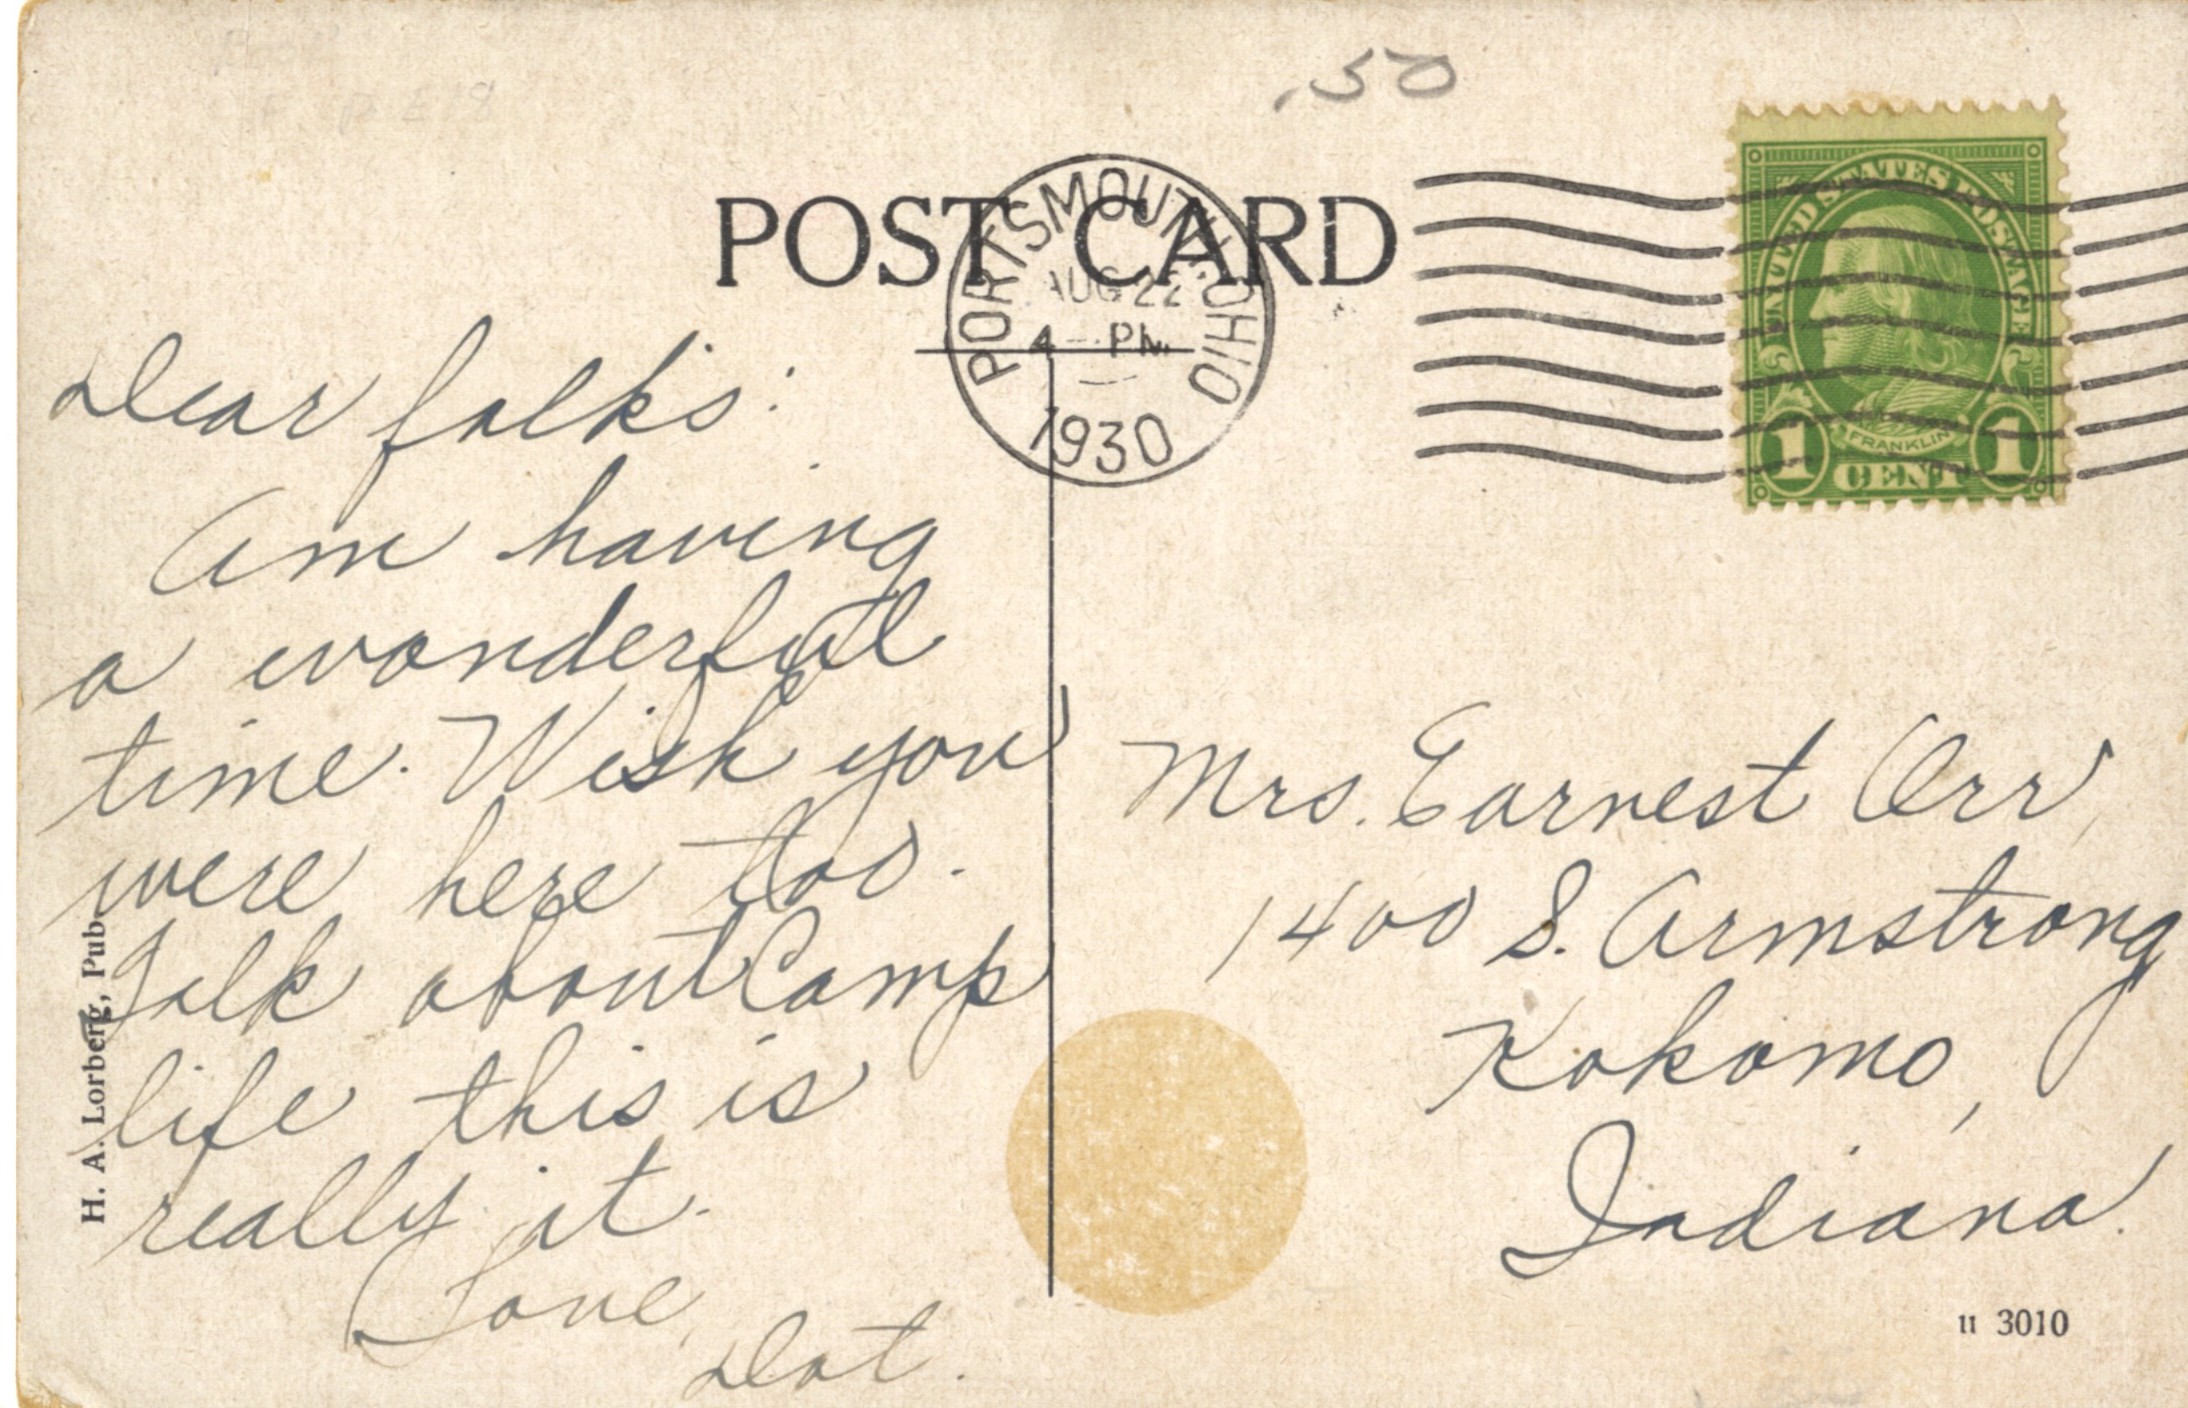 .50
POST CARD
PORTSMOUTH, OHIO
AUG 22
4 - PM
1930
UNITED STATES POSTAGE
FRANKLIN
1 CENT 1
Dear folks:
Am having
a wonderful
time. Wish you
were here too.
Talk about Camp
life this is
really it.
Love,
Dot.
Mrs. Earnest Orr,
1400 S. Armstrong
Kokomo,
Indiana.
H. A. Lorberg, Pub.
11 3010